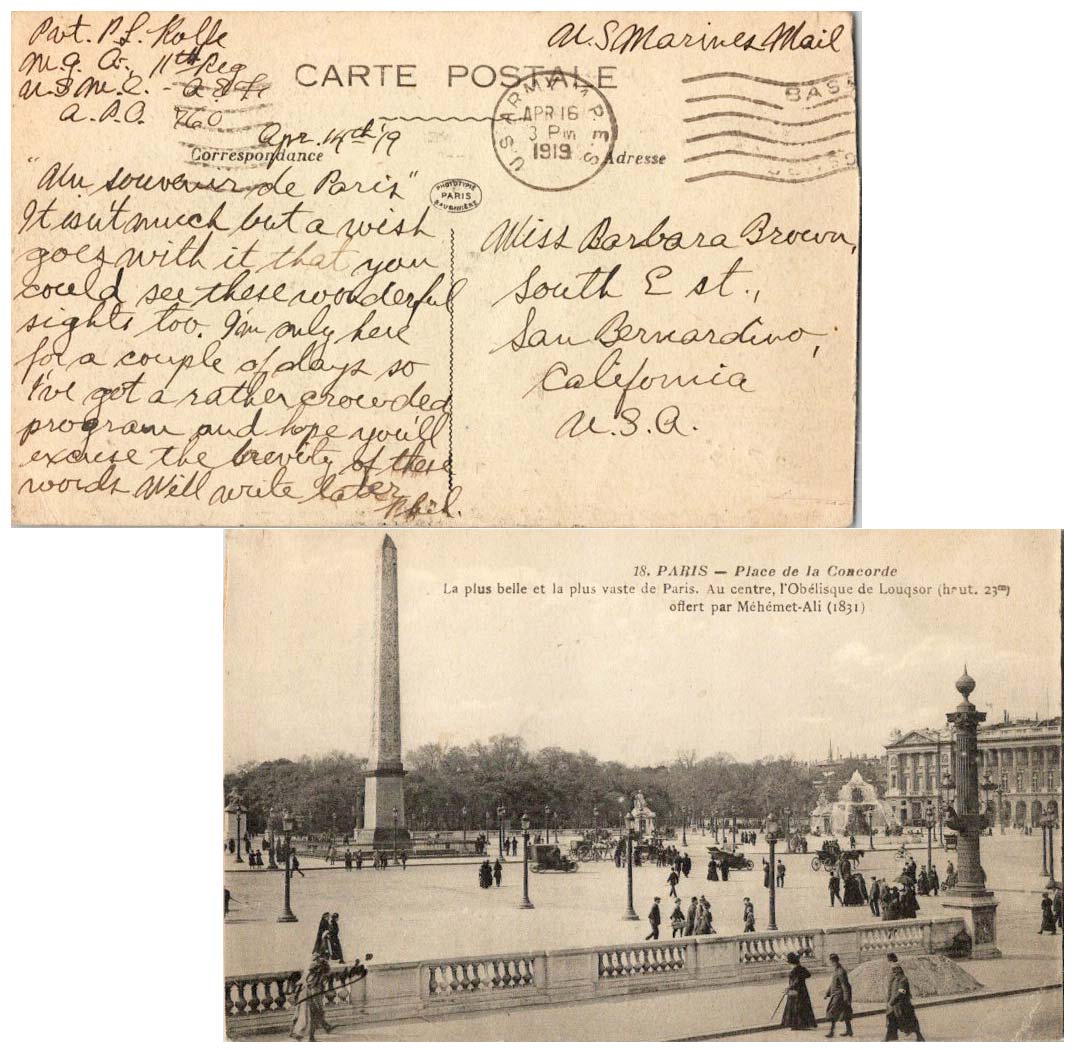 Pvt. P.L. Rolfe
M.G. Co. 11th Reg
U.S.M.C. - A.E.F.
A.P.O. 760
U.S. Marines Mail
CARTE POSTALE
Apr. 14th '19
Correspondance
Adresse
U.S. ARMY M.P.E.S.
APR 16
3 PM
1919
BASS
"Un souvenir de Paris"
It isn't much but a wish
goes with it that you
could see these wonderful
sights too. I'm only here
for a couple of days so
I've got a rather crowded
program and hope you'll
excuse the brevity of these
words Will write later
Phil.
PHOTOTYPIE
PARIS
BAUDINIÈRE
Miss Barbara Brown,
South E st.,
San Bernardino,
California
U.S.A.
18. PARIS — Place de la Concorde
La plus belle et la plus vaste de Paris. Au centre, l'Obélisque de Louqsor (haut. 23m)
offert par Méhémet-Ali (1831)